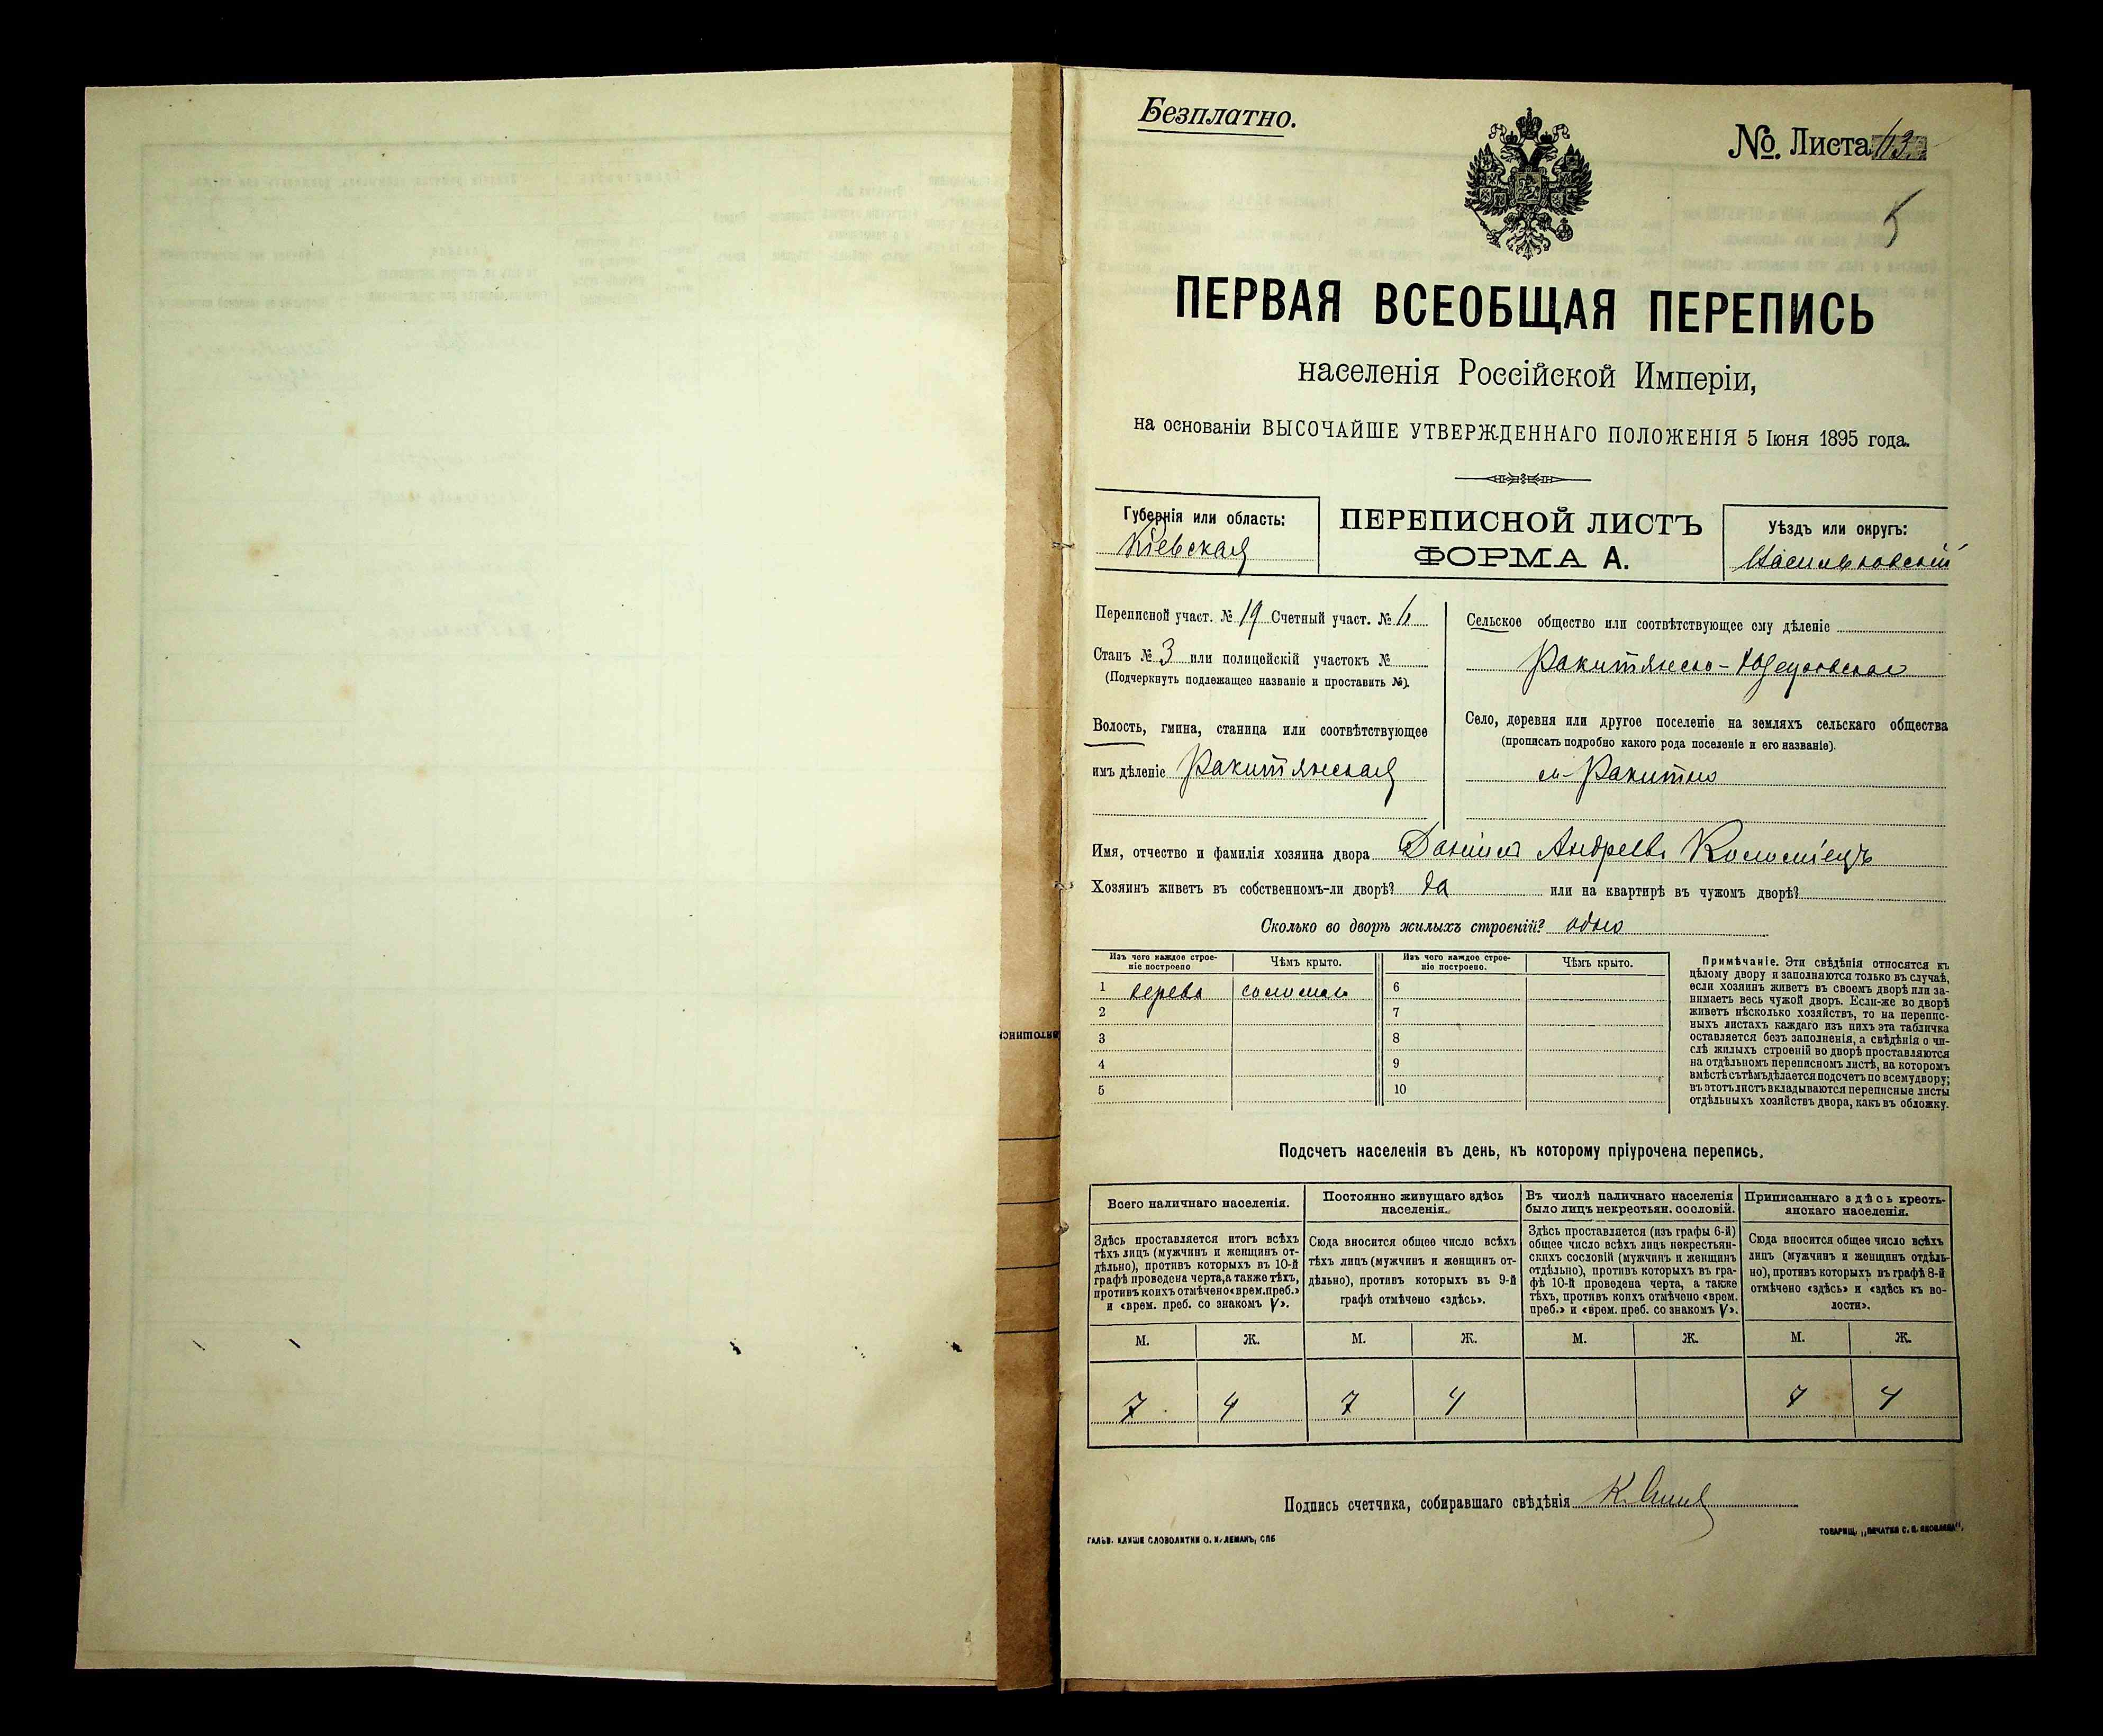 Безплатно.
№. Листа 13.
5
ПЕРВАЯ ВСЕОБЩАЯ ПЕРЕПИСЬ
населенія Россійской Имперіи,
на основаніи ВЫСОЧАЙШЕ УТВЕРЖДЕННАГО ПОЛОЖЕНІЯ 5 Іюня 1895 года.
Губернія или область:
Кіевская
ПЕРЕПИСНОЙ ЛИСТЪ
ФОРМА А.
Уѣздъ или округъ:
Васильковскій
Переписной участ. № 19 Счетный участ. № 6
Станъ № 3 или полицейскій участокъ №
(Подчеркнуть подлежащее названіе и проставить №).
Волость, гмина, станица или соотвѣтствующее
имъ дѣленіе Ракитянская
Сельское общество или соотвѣтствующее ему дѣленіе
Ракитянско-
Село, деревня или другое поселеніе на земляхъ сельскаго общества
(прописать подробно какого рода поселеніе и его названіе).
м. Ракитно
Имя, отчество и фамилія хозяина двора Даніилъ Андреевъ Коломіецъ
Хозяинъ живетъ въ собственномъ-ли дворѣ? да или на квартирѣ въ чужомъ дворѣ?
Сколько во дворѣ жилыхъ строеній? одно
Изъ чего каждое строе-
ніе построено
Чѣмъ крыто.
Изъ чего каждое строе-
ніе построено.
Чѣмъ крыто.
1 дерева соломою 6
2 7
3 8
4 9
5 10
Примѣчаніе. Эти свѣдѣнія относятся къ
цѣлому двору и заполняются только въ случаѣ,
если хозяинъ живетъ въ своемъ дворѣ или за-
нимаетъ весь чужой дворъ. Если-же во дворѣ
живетъ нѣсколько хозяйствъ, то на перепис-
ныхъ листахъ каждаго изъ нихъ эта табличка
оставляется безъ заполненія, а свѣдѣнія о чи-
слѣ жилыхъ строеній во дворѣ проставляются
на отдѣльномъ переписномъ листѣ, на которомъ
вмѣстѣ съ тѣмъ дѣлается подсчетъ по всему двору;
въ этотъ листъ вкладываются переписные листы
отдѣльныхъ хозяйствъ двора, какъ въ обложку.
Подсчетъ населенія въ день, къ которому пріурочена перепись.
Всего наличнаго населенія.
Постоянно живущаго здѣсь
населенія.
Въ числѣ наличнаго населенія
было лицъ некрестьян. сословій.
Приписаннаго здѣсь кресть-
янскаго населенія.
Здѣсь проставляется итогъ всѣхъ
тѣхъ лицъ (мужчинъ и женщинъ от-
дѣльно), противъ которыхъ въ 10-й
графѣ проведена черта, а также тѣхъ,
противъ коихъ отмѣчено «врем. преб.»
и «врем. преб. со знакомъ V».
Сюда вносится общее число всѣхъ
тѣхъ лицъ (мужчинъ и женщинъ от-
дѣльно), противъ которыхъ въ 9-й
графѣ отмѣчено «здѣсь».
Здѣсь проставляется (изъ графы 6-й)
общее число всѣхъ лицъ некрестьян-
скихъ сословій (мужчинъ и женщинъ
отдѣльно), противъ которыхъ въ гра-
фѣ 10-й проведена черта, а также
тѣхъ, противъ коихъ отмѣчено «врем.
преб.» и «врем. преб. со знакомъ V».
Сюда вносится общее число всѣхъ
лицъ (мужчинъ и женщинъ отдѣль-
но), противъ которыхъ въ графѣ 8-й
отмѣчено «здѣсь» и «здѣсь къ во-
лости».
М. Ж. М. Ж. М. Ж. М. Ж.
7 4 7 4 7 4
Подпись счетчика, собиравшаго свѣдѣнія
ГАЛЬВ. КЛИШЕ СЛОВОЛИТНИ О. И. ЛЕМАНЪ, СПБ
ТОВАРИЩ. „ПЕЧАТНЯ С. П. ЯКОВЛЕВА“.